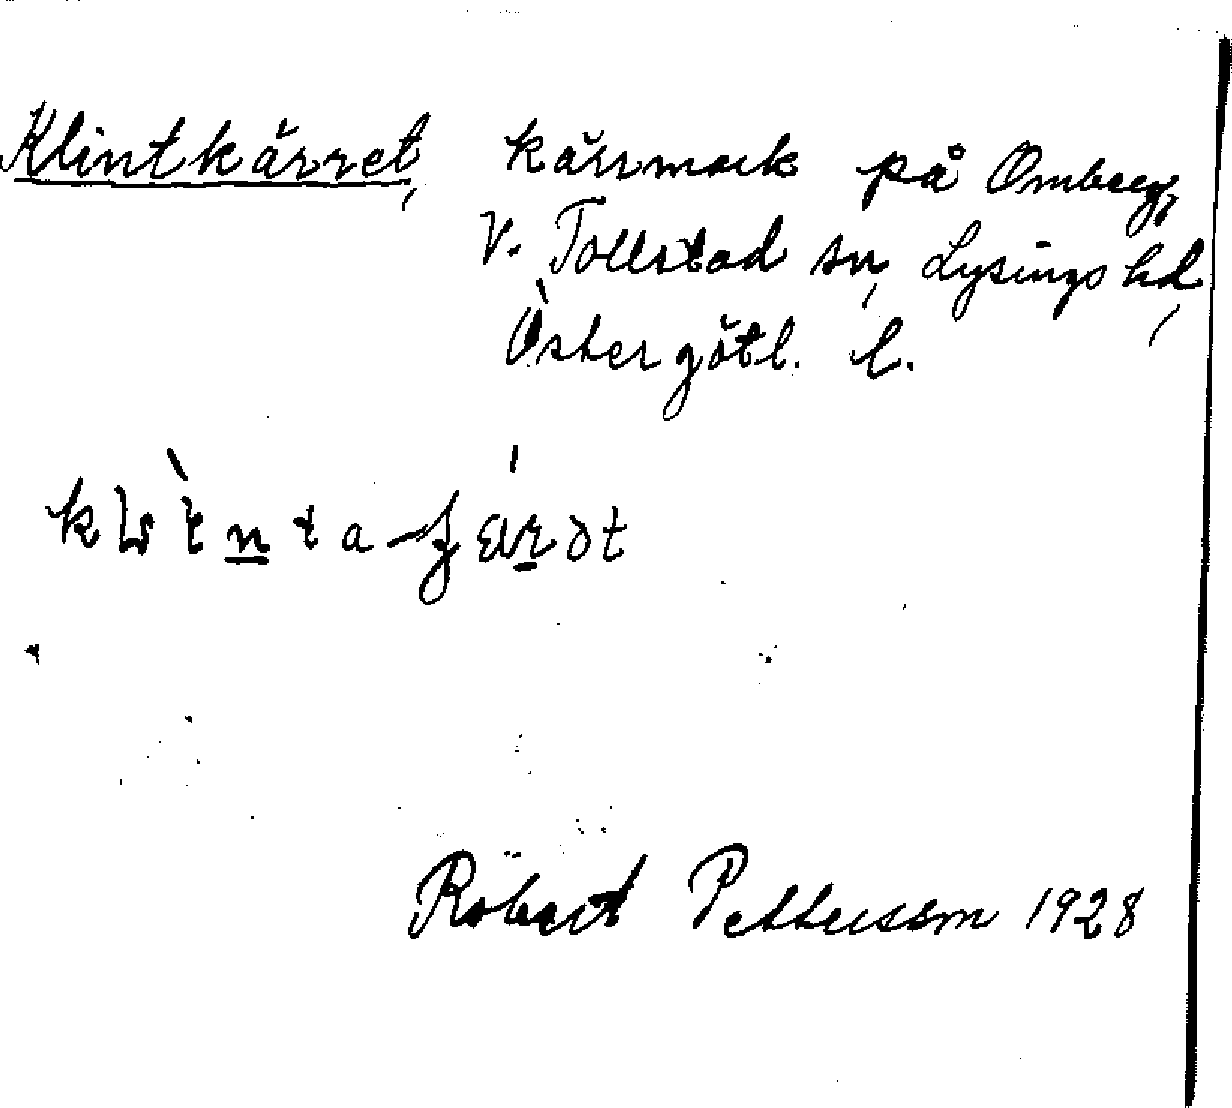 Klintkärret, kärrmark på Omberg,
V. Tollstad sn, Lysings hd,
Östergötl. l.
Robert Pettersson 1928